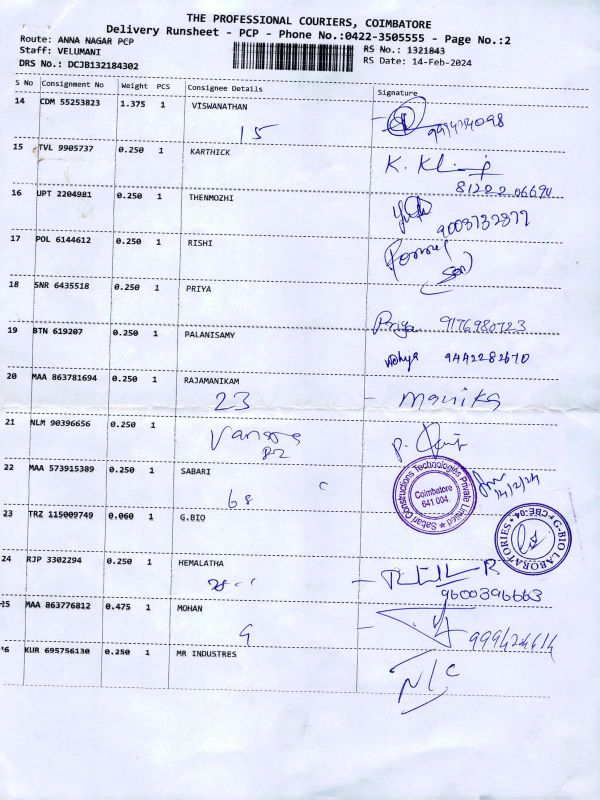 THE PROFESSIONAL COURIERS, COIMBATORE
Delivery Runsheet - PCP - Phone No.:0422-3505555 - Page No.:2
Route: ANNA NAGAR PCP
Staff: VELUMANI
RS No.: 1321843
DRS No.: DCJB132184302
RS Date: 14-Feb-2024
S No Consignment No Weight PCS Consignee Details Signature
14 CDM 55253823 1.375 1 VISWANATHAN
15
15 TVL 9905737 0.250 1 KARTHICK
K.
81202 06690
16 UPT 2204981 0.250 1 THENMOZHI
9003732377
17 POL 6144612 0.250 1 RISHI
(Son)
18 SNR 6435518 0.250 1 PRIYA
Priya 9176980723
19 BTN 619207 0.250 1 PALANISAMY
9442282670
20 MAA 863781694 0.250 1 RAJAMANIKAM
23
21 NLM 90396656 0.250 1
P.
22 MAA 573915389 0.250 1 SABARI
68
Sabari Constructions Technologies Private Limited
Coimbatore
641 004.
14/2/24
23 TRZ 115009749 0.060 1 G.BIO
G-BIO LABORATORIES
CBE-04
24 RJP 3302294 0.250 1 HEMALATHA
9600396663
25 MAA 863776812 0.475 1 MOHAN
9
26 KUR 695756130 0.250 1 MR INDUSTRES
N/C